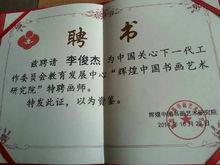 聘 书
兹聘请 李俊杰 为中国关心下一代工
作委员会教育发展中心“辉煌中国书画艺术
研究院”特聘画师。
特发此证，以为资鉴。
辉煌中国书画艺术研究院